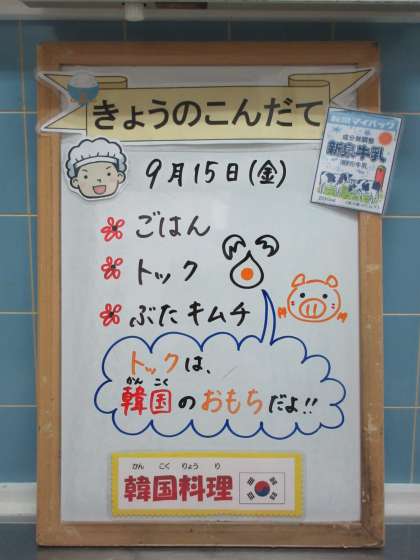 きょうのこんだて
9月15日(金)
ごはん
トック
ぶたキムチ
トックは、
かん こく
韓国のおもちだよ!!
かん こく りょう り
韓国料理
成分無調整
牛乳